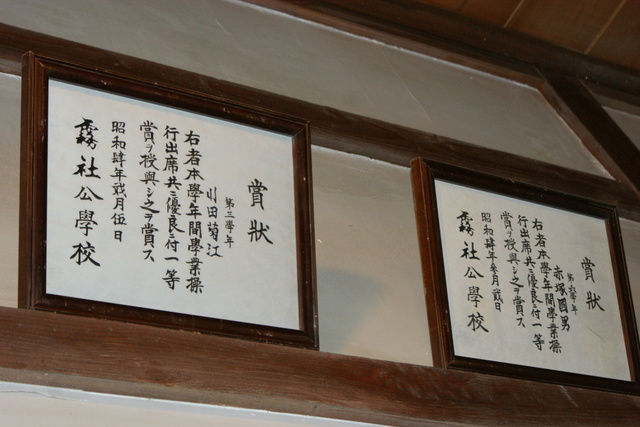 賞狀
第三學年
山田菊江
右者本學年間學業操
行出席共ニ優良ニ付一等
賞ヲ授與シ之ヲ賞ス
昭和肆年貳月伍日
霧社公學校
賞狀
學年
赤塚國男
右者本學年間學業操
行出席共ニ優良ニ付一等
賞ヲ授與シ之ヲ賞ス
昭和肆年參月貳日
霧社公學校